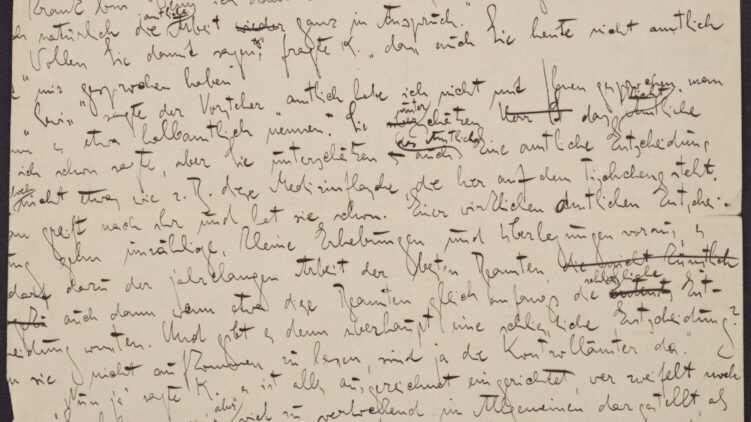 krank bin
natürlich die amtliche Arbeit wieder ganz in Anspruch."
Wollen Sie damit sagen" fragte K. " dass auch Sie heute nicht amtlich
mir gesprochen haben"
"Gewiss" sagte der Vorsteher "amtlich habe ich nicht mit Ihnen gesprochen, man
es etwa halbamtlich nennen. Sie unterschätzen das Amtliche
ich schon sagte, aber Sie unterschätzen auch Eine amtliche Entscheidung
nicht etwas wie z. B. diese Medizinflasche, die hier auf dem Tischchen steht.
greift nach ihr und hat sie schon. Einer wirklichen amtlichen Entschei-
gehn unzählige, kleine Erhebungen und Überlegungen voraus, es
darf dazu der jahrelangen Arbeit der besten Beamten, die nicht
auch dann wenn etwa diese Beamten gleich anfangs die schliessliche Ent-
eidung wussten. Und gibt es denn überhaupt eine schliessliche Entscheidung?
sie nicht aufkommen zu lassen, sind ja die Kontrollämter da."
"Nun ja" sagte K. es ist alles ausgezeichnet eingerichtet, wer zweifelt noch
aber zu verlockend im Allgemeinen dargestellt, als